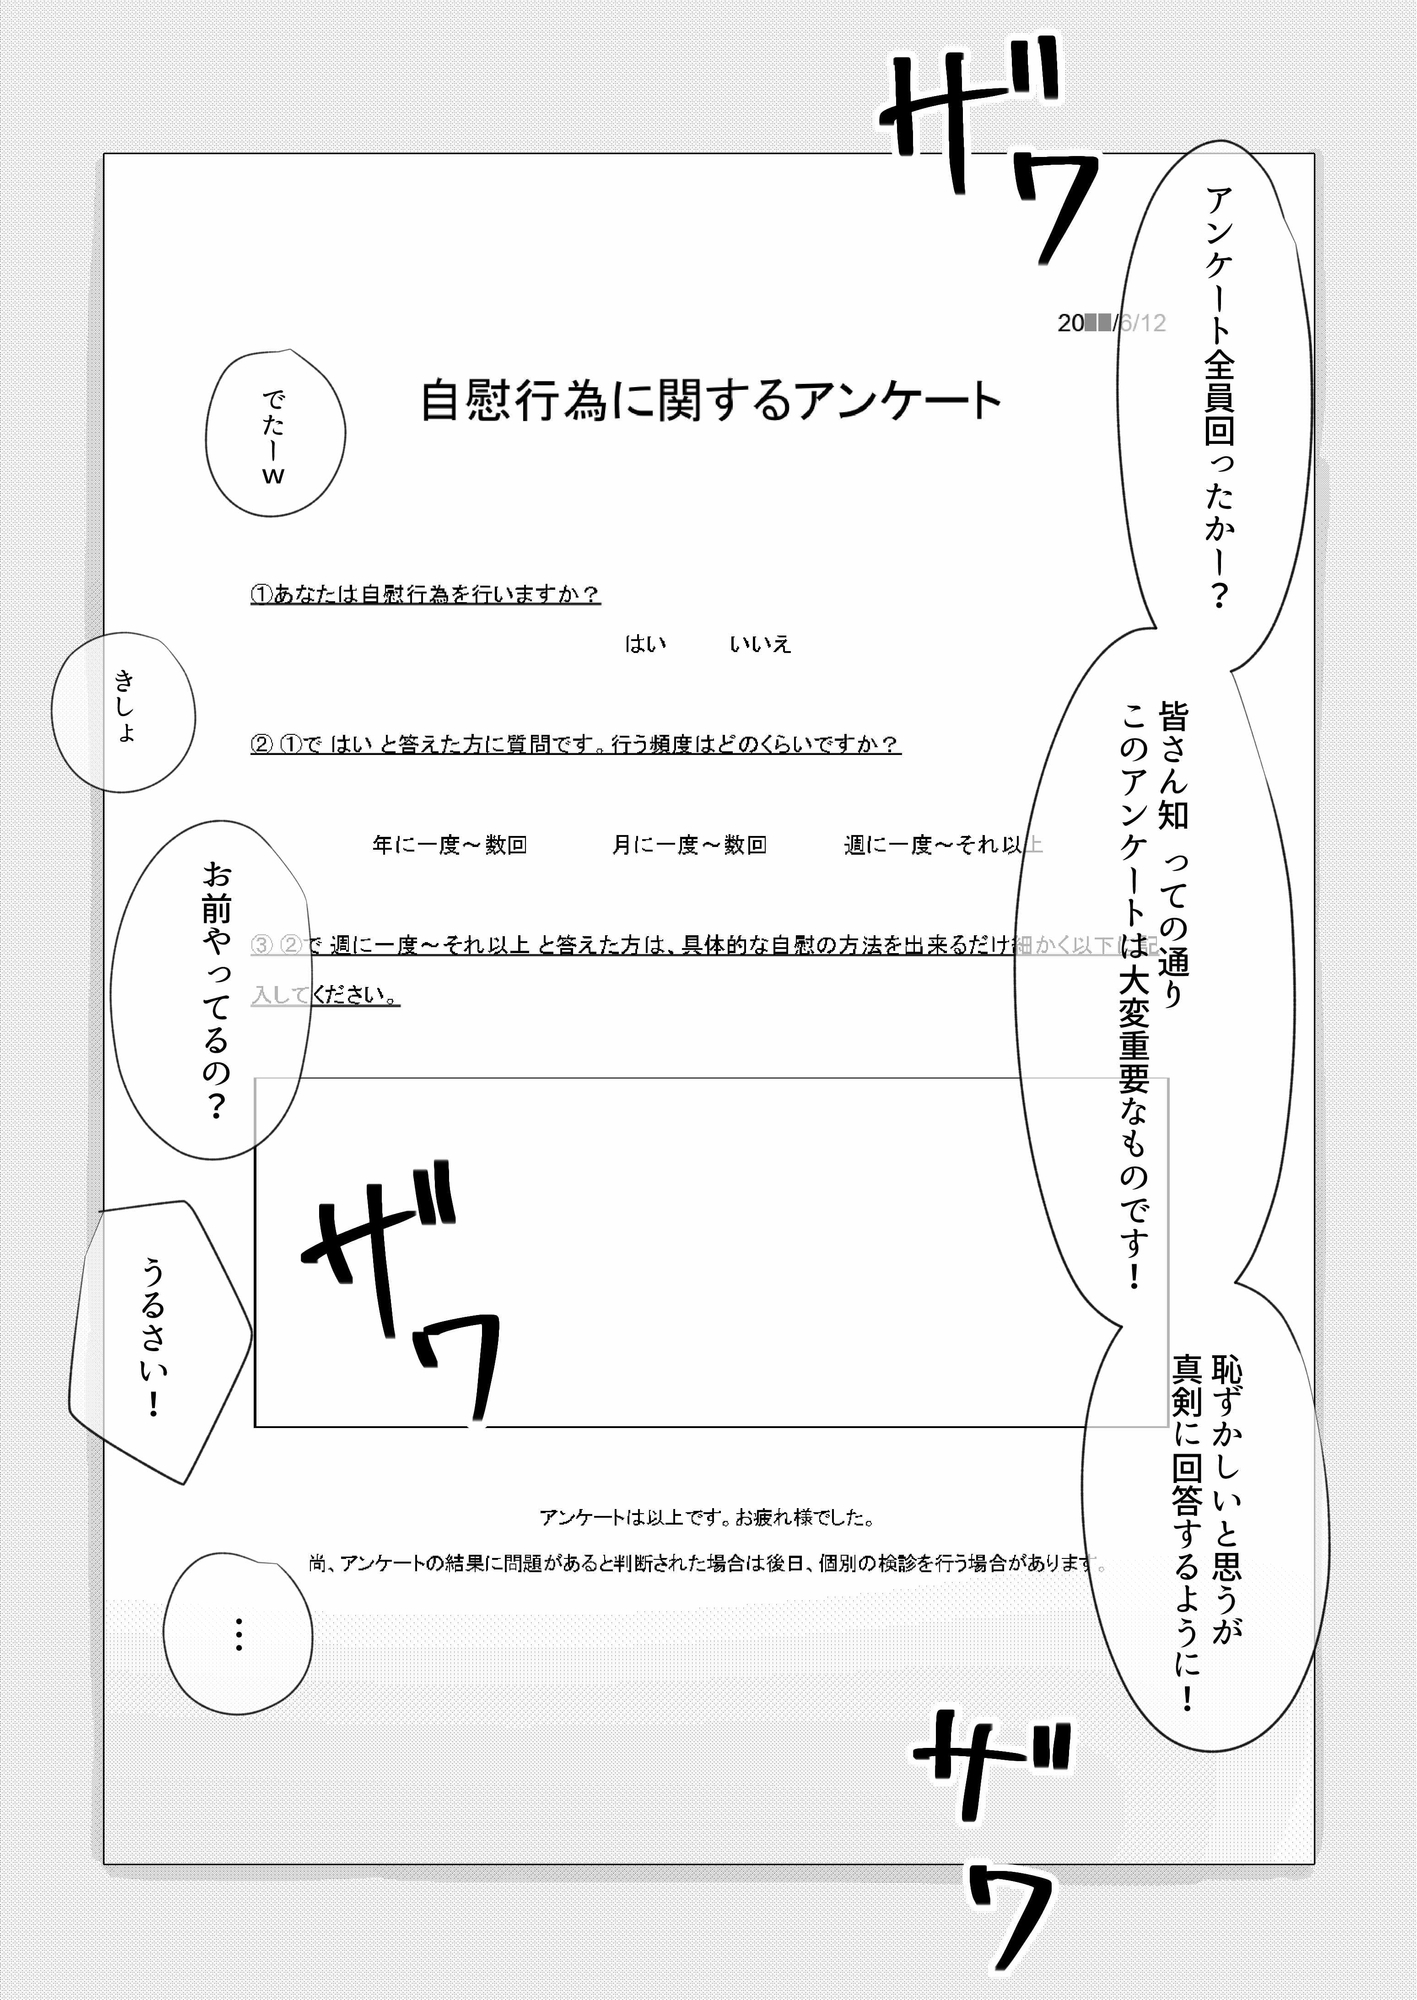 ザワ
アンケート全員回ったかー？
20██/6/12
自慰行為に関するアンケート
でたーw
①あなたは自慰行為を行いますか？
はい いいえ
きしょ
皆さん知っての通り
このアンケートは大変重要なものです！
② ①で はい と答えた方に質問です。行う頻度はどのくらいですか？
年に一度～数回 月に一度～数回 週に一度～それ以上
お前やってるの？
③ ②で 週に一度～それ以上 と答えた方は、具体的な自慰の方法を出来るだけ細かく以下に記
入してください。
ザワ
うるさい！
恥ずかしいと思うが
真剣に回答するように！
アンケートは以上です。お疲れ様でした。
尚、アンケートの結果に問題があると判断された場合は後日、個別の検診を行う場合があります。
…
ザワ